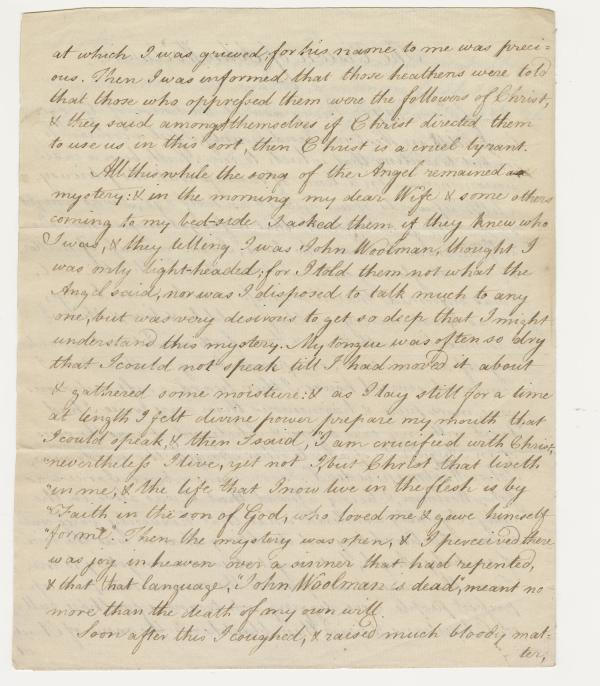 at which I was grieved, for his name to me was preci-
ous. Then I was informed that those heathens were told
that those who oppressed them were the followers of Christ,
& they said amongst themselves if Christ directed them
to use us in this sort, then Christ is a cruel tyrant.
All this while the song of the Angel remained a
mystery: & in the morning my dear Wife & some others
coming to my bed-side I asked them if they knew who
I was, & they telling I was John Woolman, thought I
was only light-headed; for I told them not what the
Angel said, nor was I disposed to talk much to any
one; but was very desirous to get so deep that I might
understand this mystery. My tongue was often so dry
that I could not speak till I had moved it about
& gathered some moisture: & as I lay still for a time
at length I felt divine power prepare my mouth that
I could speak, & then I said, "I am crucified with Christ,
"nevertheless I live, yet not I, but Christ that liveth
"in me, & the life that I now live in the flesh is by
"Faith in the son of God, who loved me & gave himself
"for me". Then the mystery was open, & I perceived there
was joy in heaven over a sinner that had repented,
& that that language, "John Woolman is dead", meant no
more than the death of my own will.
Soon after this I coughed, & raised much bloody mat-
ter,